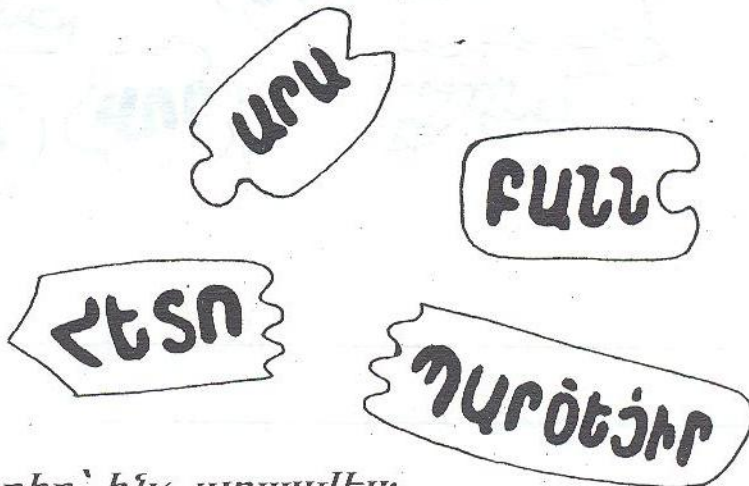 արա
Բանն
Հետո
Պարծեցիր